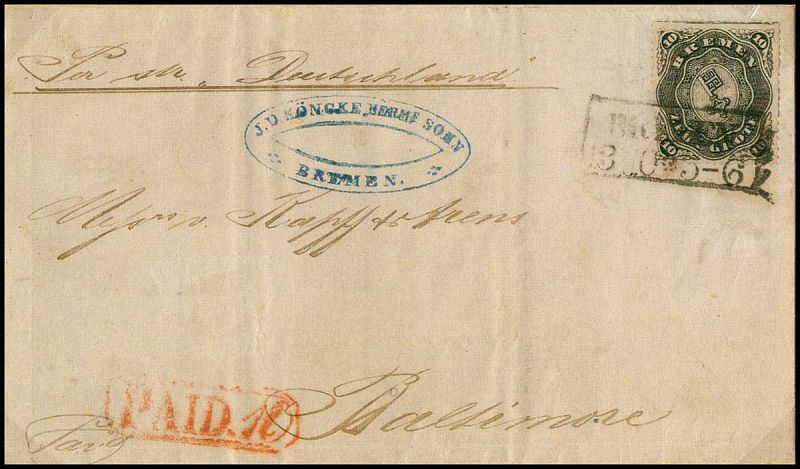 Per str. „Deutschland"
10 BREMEN 10
ZEHN GROTE
10 10
J. D. KÖNCKE, HERMS SOHN
BREMEN.
BREMEN
3 10 5-6
Messrs. v. Kapff & Arens
PAID. 10
Baltimore